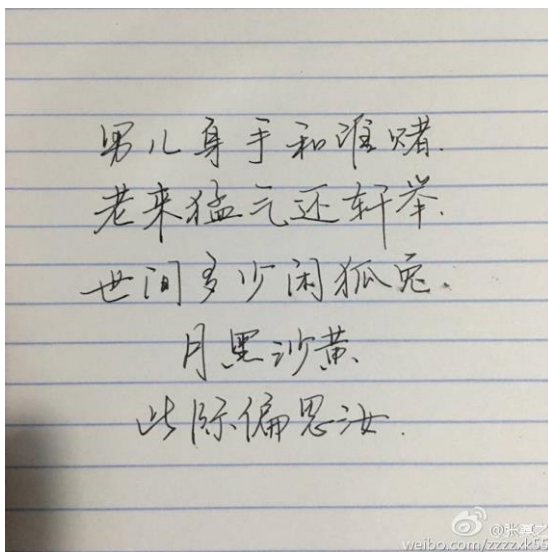 男儿身手和谁赌.
老来猛气还轩举.
世间多少闲狐兔.
月黑沙黄.
此际偏思汝.
weibo.com/zzzzxk55